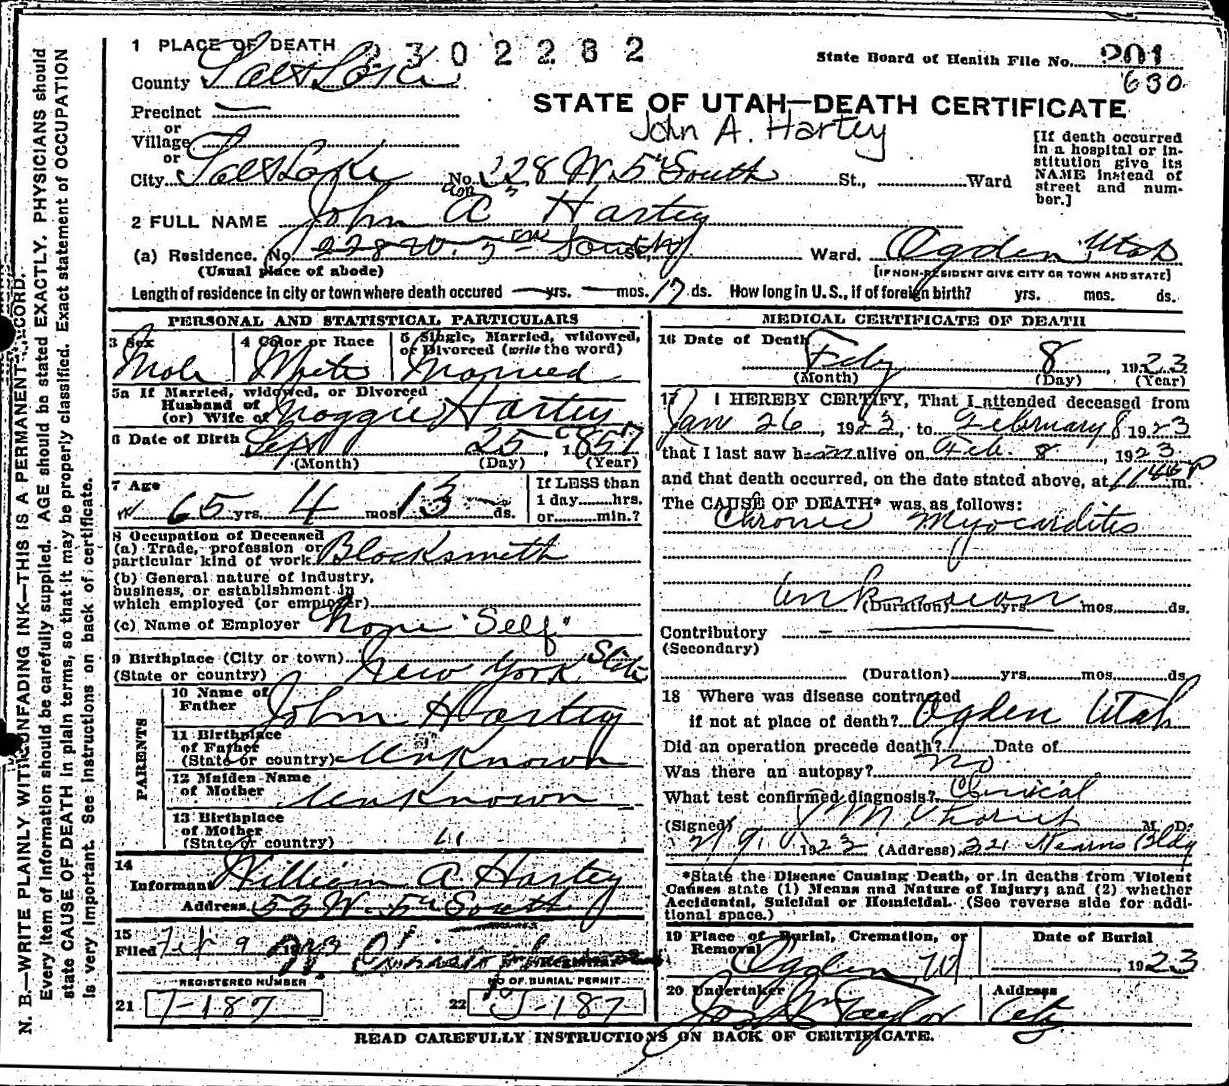 N. B.—WRITE PLAINLY WITH UNFADING INK—THIS IS A PERMANENT RECORD.
Every item of information should be carefully supplied. AGE should be stated EXACTLY. PHYSICIANS should
state CAUSE OF DEATH in plain terms, so that it may be properly classified. Exact statement of OCCUPATION
is very important. See instructions on back of certificate.
1 PLACE OF DEATH 2302282
State Board of Health File No. 201
630
County Salt Lake
STATE OF UTAH—DEATH CERTIFICATE
John A. Hartey
Precinct
or
Village
or
City Salt Lake No. 228 W. 5th South St., Ward
[If death occurred
in a hospital or in-
stitution give its
NAME instead of
street and num-
ber.]
2 FULL NAME John A Hartey
(a) Residence. No. 228 W. 5th South Ward. Ogden, Utah
(Usual place of abode) [IF NON-RESIDENT GIVE CITY OR TOWN AND STATE]
Length of residence in city or town where death occured yrs. mos. 17 ds. How long in U. S., if of foreign birth? yrs. mos. ds.
PERSONAL AND STATISTICAL PARTICULARS
3 Sex
Male
4 Color or Race
White
5 Single, Married, widowed,
or Divorced (write the word)
Married
5a If Married, widowed, or Divorced
Husband of
(or) Wife of Maggie Hartey
6 Date of Birth Sept 25, 1857
(Month) (Day) (Year)
7 Age
65 yrs. 4 mos. 13 ds.
If LESS than
1 day hrs.
or min.?
8 Occupation of Deceased
(a) Trade, profession or
particular kind of work Blacksmith
(b) General nature of industry,
business, or establishment in
which employed (or employer)
(c) Name of Employer None "Self"
9 Birthplace (City or town)
(State or country) New York State
PARENTS
10 Name of
Father John Hartey
11 Birthplace
of Father
(State or country) Unknown
12 Maiden Name
of Mother Unknown
13 Birthplace
of Mother
(State or country) "
14
Informant William A Hartey
Address 53 W. 5th South
15
Filed Feb 9 1923
REGISTERED NUMBER NO OF BURIAL PERMIT
21 T-187 22 T-187
MEDICAL CERTIFICATE OF DEATH
16 Date of Death
Feby 8, 1923
(Month) (Day) (Year)
17 I HEREBY CERTIFY, That I attended deceased from
Jan 26, 1923, to February 8 1923
that I last saw him alive on Feb. 8, 1923
and that death occurred, on the date stated above, at 11 45 P m.
The CAUSE OF DEATH* was as follows:
Chronic Myocarditis
Unknown
(Duration) yrs. mos. ds.
Contributory
(Secondary)
(Duration) yrs. mos. ds.
18 Where was disease contracted
if not at place of death? Ogden Utah
Did an operation precede death? Date of
Was there an autopsy? No
What test confirmed diagnosis? Clinical
(Signed) M. D.
2/9 1923 (Address) 321 Kearns Bldg
*State the Disease Causing Death, or in deaths from Violent
Causes state (1) Means and Nature of Injury; and (2) whether
Accidental, Suicidal or Homicidal. (See reverse side for addi-
tional space.)
19 Place of Burial, Cremation, or
Removal
Ogden Ut
Date of Burial
1923
20 Undertaker
Jos Wm Taylor
Address
City
READ CAREFULLY INSTRUCTIONS ON BACK OF CERTIFICATE.